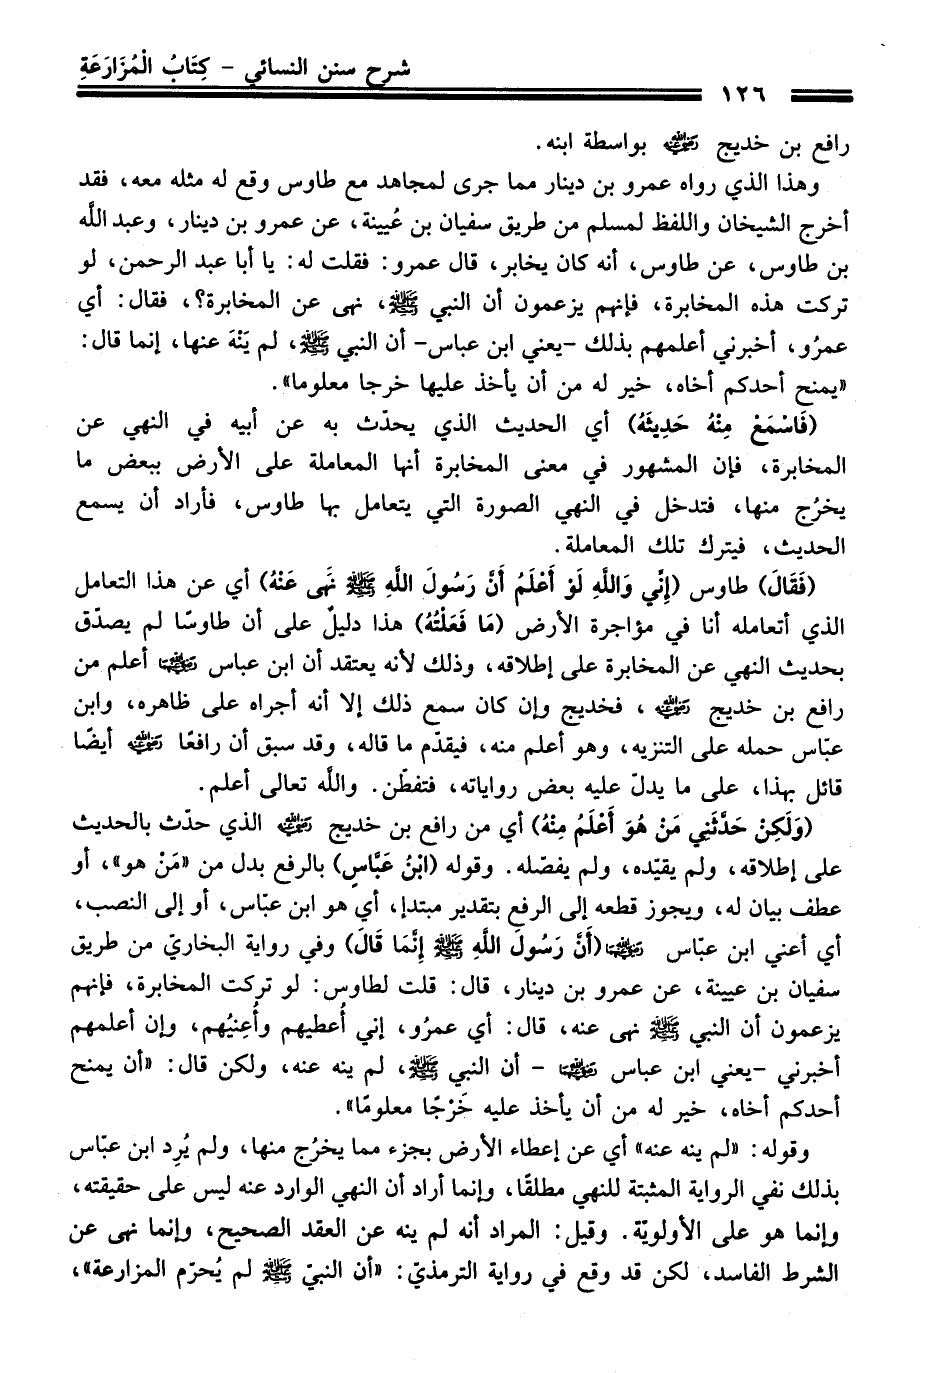 شرح سنن النسائي - كِتَابُ الْمُزَارَعَةِ
١٢٦
رافع بن خديج رضي الله عنه بواسطة ابنه.
وهذا الذي رواه عمرو بن دينار مما جرى لمجاهد مع طاوس وقع له مثله معه، فقد
أخرج الشيخان واللفظ لمسلم من طريق سفيان بن عُيينة، عن عمرو بن دينار، وعبد الله
بن طاوس، عن طاوس، أنه كان يخابر، قال عمرو: فقلت له: يا أبا عبد الرحمن، لو
تركت هذه المخابرة، فإنهم يزعمون أن النبي ﷺ، نهى عن المخابرة؟، فقال: أي
عمرُو، أخبرني أعلمهم بذلك -يعني ابن عباس- أن النبي ﷺ، لم يَنْهَ عنها، إنما قال:
«يمنح أحدكم أخاه، خير له من أن يأخذ عليها خرجا معلوما».
(فَاسْمَعْ مِنْهُ حَدِيثَهُ) أي الحديث الذي يحدّث به عن أبيه في النهي عن
المخابرة، فإن المشهور في معنى المخابرة أنها المعاملة على الأرض ببعض ما
يخرُج منها، فتدخل في النهي الصورة التي يتعامل بها طاوس، فأراد أن يسمع
الحديث، فيترك تلك المعاملة.
(فَقَالَ) طاوس (إِنِّي وَاللَّهِ لَوْ أَعْلَمُ أَنَّ رَسُولَ اللَّهِ ﷺ نَهَى عَنْهُ) أي عن هذا التعامل
الذي أتعامله أنا في مؤاجرة الأرض (مَا فَعَلْتُهُ) هذا دليلٌ على أن طاوسًا لم يصدّق
بحديث النهي عن المخابرة على إطلاقه، وذلك لأنه يعتقد أن ابن عباس رضي الله عنهما أعلم من
رافع بن خديج رضي الله عنه، فخديج وإن كان سمع ذلك إلا أنه أجراه على ظاهره، وابن
عبّاس حمله على التنزيه، وهو أعلم منه، فيقدّم ما قاله، وقد سبق أن رافعًا رضي الله عنه أيضًا
قائل بهذا، على ما يدلّ عليه بعض رواياته، فتفطّن. والله تعالى أعلم.
(وَلَكِنْ حَدَّثَنِي مَنْ هُوَ أَعْلَمُ مِنْهُ) أي من رافع بن خديج رضي الله عنه الذي حدّث بالحديث
على إطلاقه، ولم يقيّده، ولم يفصّله. وقوله (ابْنُ عَبَّاسٍ) بالرفع بدل من «مَنْ هو»، أو
عطف بيان له، ويجوز قطعه إلى الرفع بتقدير مبتدإ، أي هو ابن عبّاس، أو إلى النصب،
أي أعني ابن عبّاس رضي الله عنهما (أَنَّ رَسُولَ اللَّهِ ﷺ إِنَّمَا قَالَ) وفي رواية البخاريّ من طريق
سفيان بن عيينة، عن عمرو بن دينار، قال: قلت لطاوس: لو تركت المخابرة، فإنهم
يزعمون أن النبي ﷺ نهى عنه، قال: أي عمرُو، إني أُعطيهم وأُعِنيُهم، وإن أعلمهم
أخبرني -يعني ابن عباس رضي الله عنهما - أن النبي ﷺ، لم ينه عنه، ولكن قال: «أن يمنح
أحدكم أخاه، خير له من أن يأخذ عليه خَرْجًا معلومًا».
وقوله: «لم ينه عنه» أي عن إعطاء الأرض بجزء مما يخرُج منها، ولم يُرِد ابن عبّاس
بذلك نفي الرواية المثبتة للنهي مطلقًا، وإنما أراد أن النهي الوارد عنه ليس على حقيقته،
وإنما هو على الأولويّة. وقيل: المراد أنه لم ينه عن العقد الصحيح، وإنما نهى عن
الشرط الفاسد، لكن قد وقع في رواية الترمذيّ: «أن النبيّ ﷺ لم يُحرّم المزارعة»،